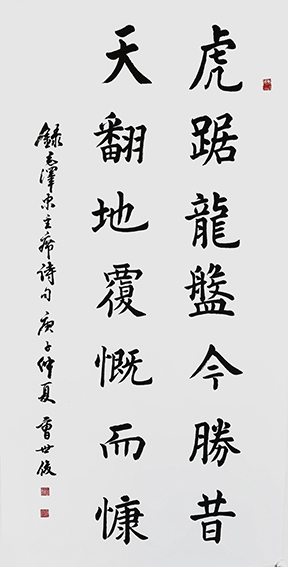 虎踞龍盤今勝昔
天翻地覆慨而慷
録毛澤东主席詩句 庚子仲夏 曹世俊